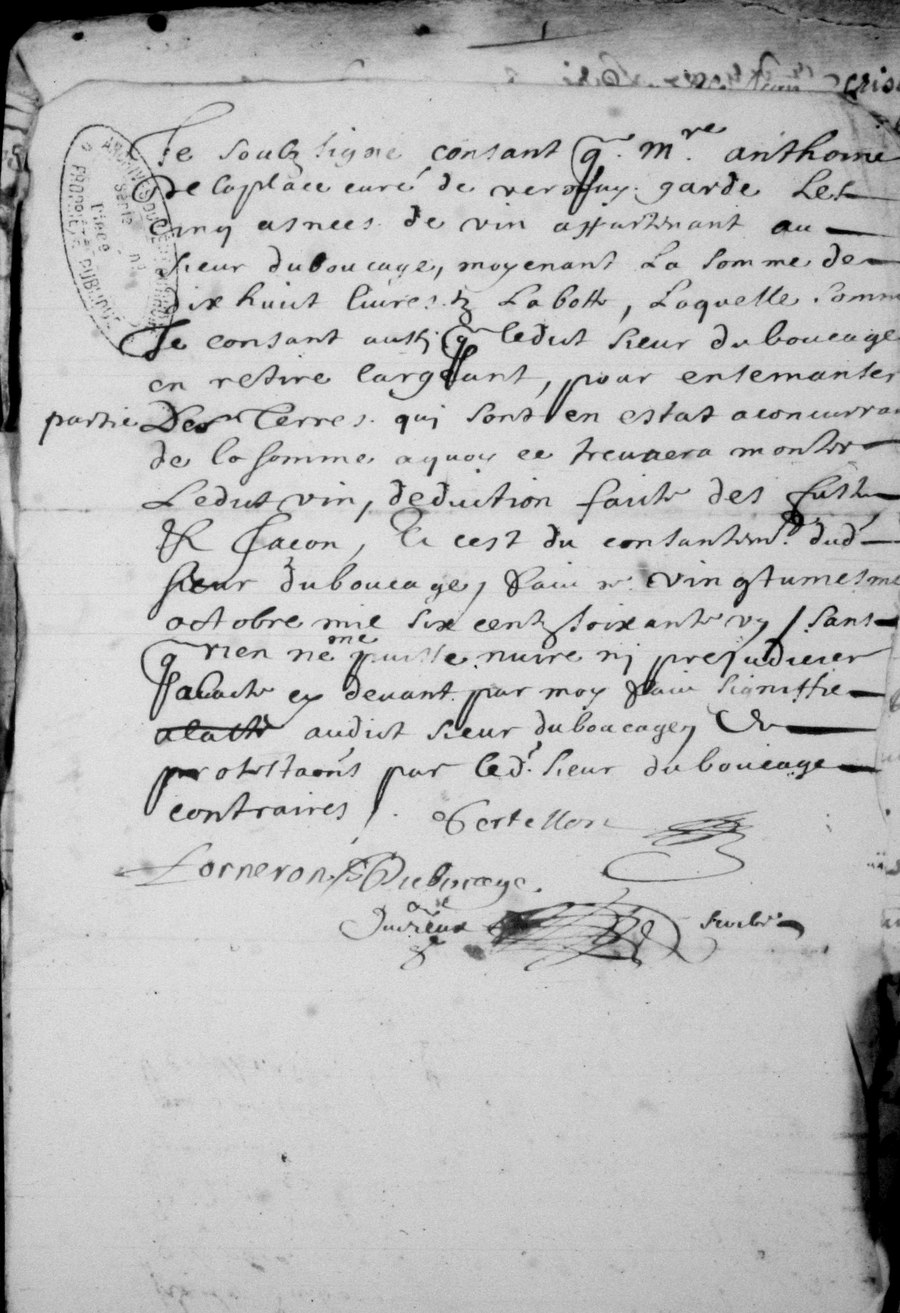 Je soubz signé consant q. mre. anthoine
de laplace curé de garde Les
cinq asnees de vin appartenant au
sieur duboucage, moyenant La somme de
dix huict livres tz Labotte, Laquelle somme
Je consant aussi q ledict sieur duboucage
en retire largeant, pour ensemanser
partie Des Terres qui sont en estat a
de la somme a quoy ce treuvera monter
Ledict vin, deduction faicte des
& facon, Et cest du dud
sieur duboucage, faict ce vingtuniesme
octobre mil six centz soixante / sans
q rien ne me puisse nuire nj prejudicier
cy devant par moy faict signiffié
audict sieur duboucage, &
par led. sieur duboucage
contraires /. Pertellon
Duboucage